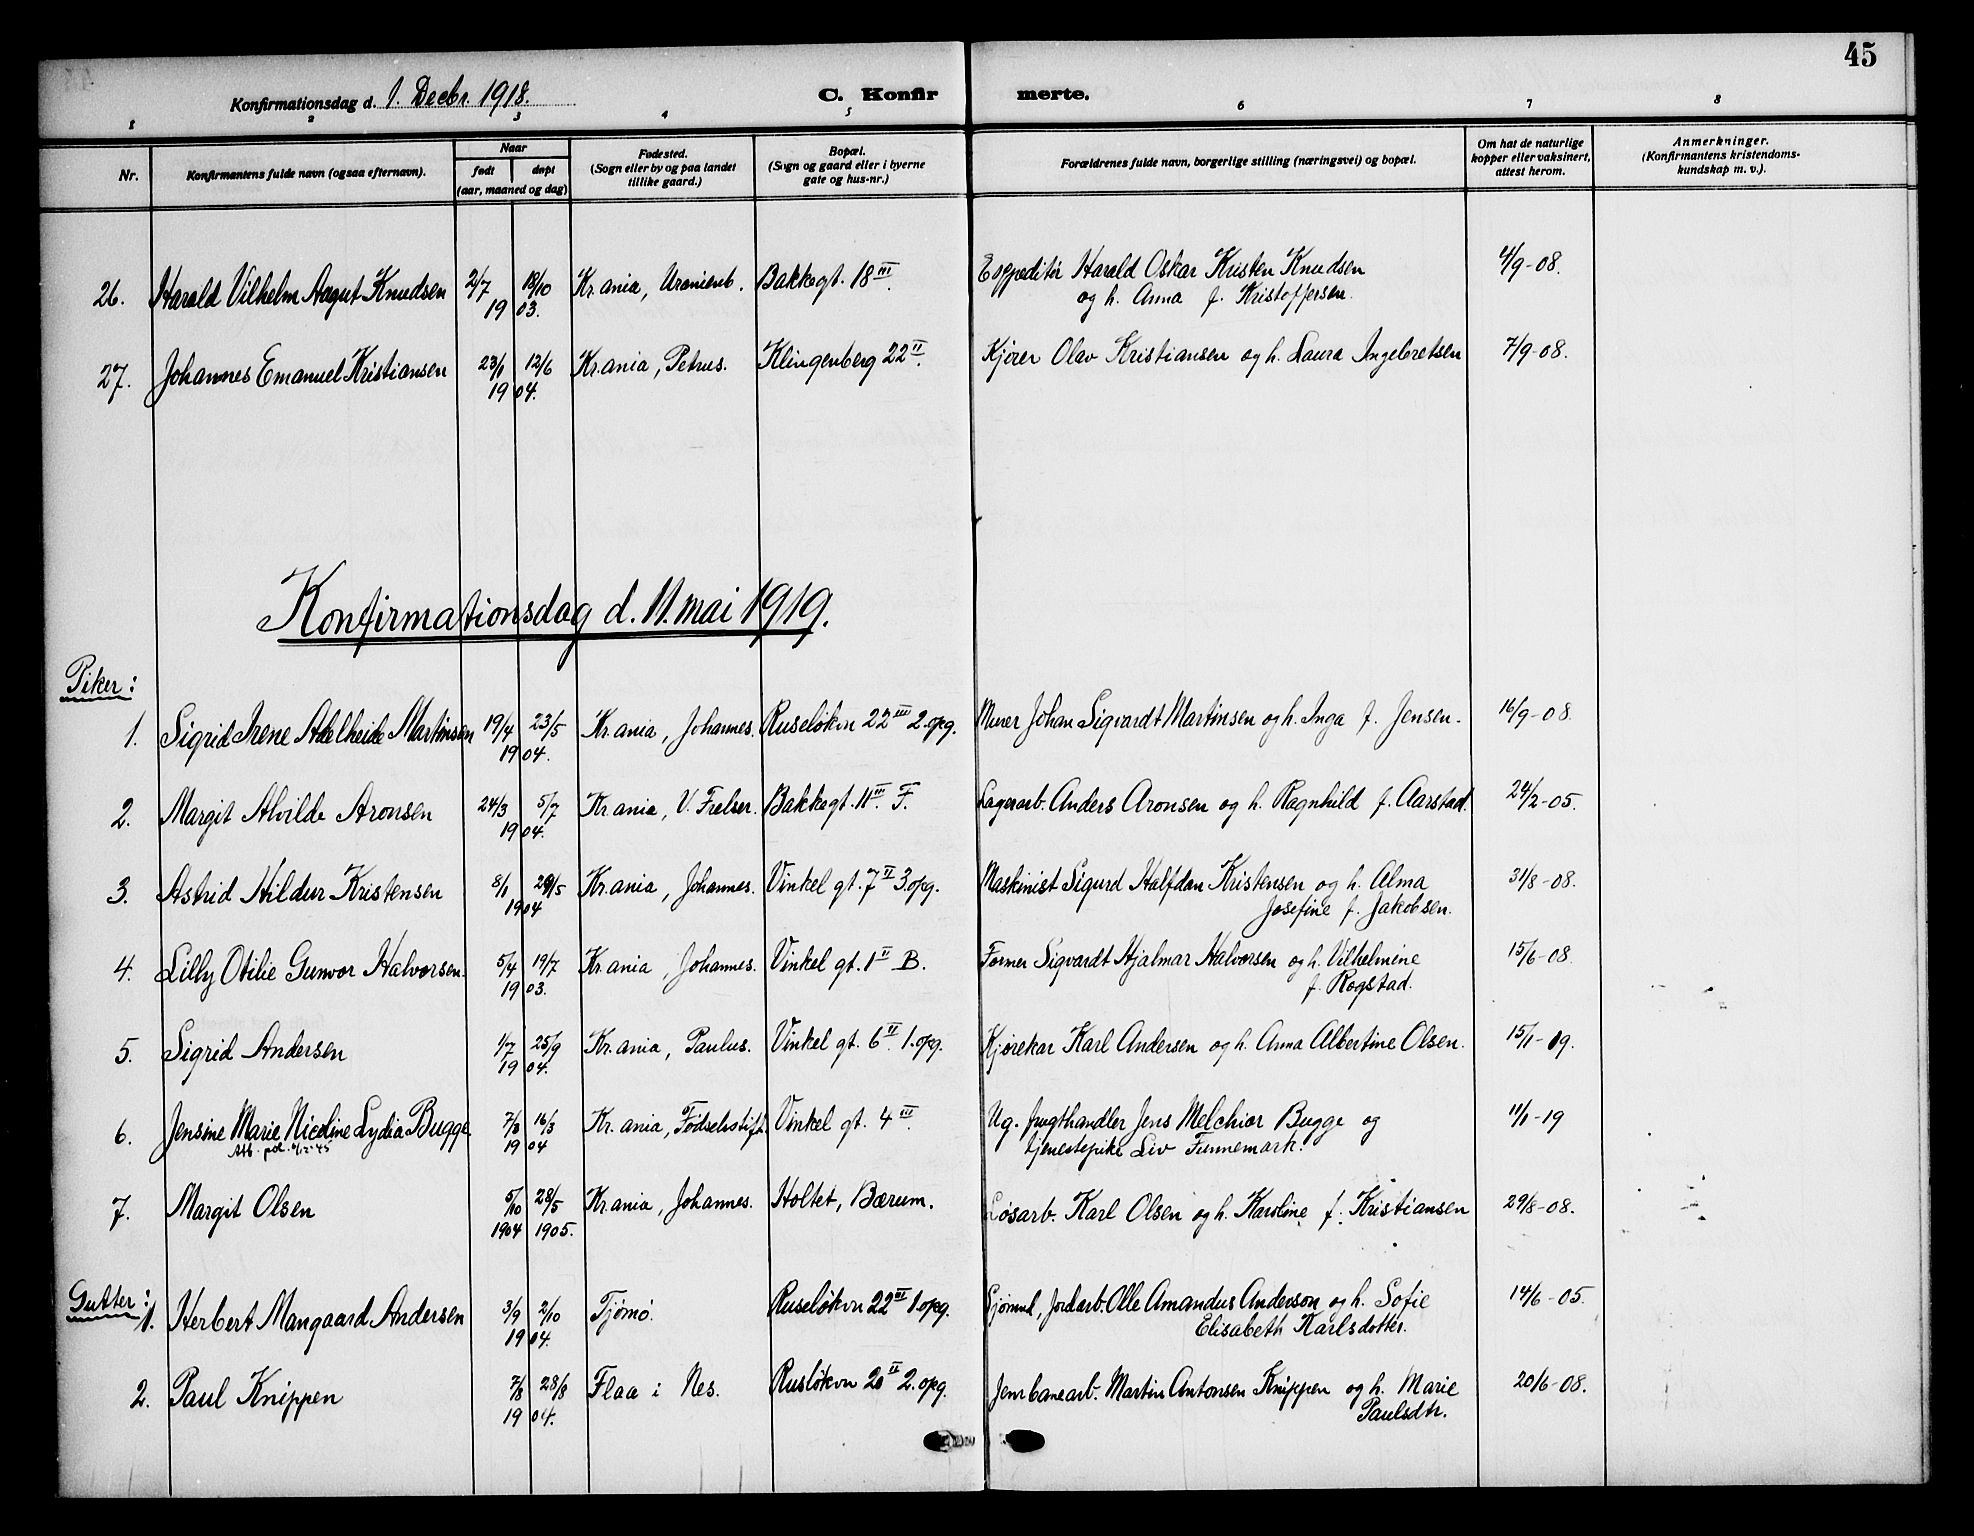 45
Konfirmationsdag d. 1. Decbr. 1918.
C. Konfirmerte.
1 2 3 4 5 6 7 8
Nr.
Konfirmantens fulde navn (ogsaa efternavn).
Naar
født døpt
(aar, maaned og dag)
Fødested.
(Sogn eller by og paa landet
tillike gaard.)
Bopæl.
(Sogn og gaard eller i byerne
gate og hus-nr.)
Forældrenes fulde navn, borgerlige stilling (næringsvei) og bopæl.
Om hat de naturlige
kopper eller vaksinert,
attest herom.
Anmerkninger.
(Konfirmantens kristendoms-
kundskap m. v.).
26. Harald Vilhelm August Knudsen 2/7 18/10 Kr.ania, Uranienb. Bakkegt. 18 III. Expeditør Harald Oskar Kristen Knudsen 4/9-08.
1903. og h. Anna f. Kristoffersen.
27. Johannes Emanuel Kristiansen 23/1 12/6 Kr.ania, Petrus. Klingenberg 22 II. Kjører Olav Kristiansen og h. Laura Ingebretsen 7/9-08.
1904.
Konfirmationsdag d. 11. mai 1919.
Piker:
1. Sigrid Irene Adelheide Martinsen 19/4 23/5 Kr.ania, Johannes. Ruseløkvn 22 III 2. opg. Murer Johan Sigvardt Martinsen og h. Inga f. Jensen. 16/9-08.
1904.
2. Margit Alvilde Aronsen 24/3 5/7 Kr.ania, V. Frelser. Bakkegt. 11 III. F. Lagerarb. Anders Aronsen og h. Ragnhild f. Aarstad. 24/2-05.
1904.
3. Astrid Hildur Kristensen 8/1 29/5 Kr.ania, Johannes. Vinkel gt. 7 II 3. opg. Maskinist Sigurd Halfdan Kristensen og h. Alma 31/8-08.
1904 Josefine f. Jakobsen.
4. Lilly Otilie Gunvor Halvorsen. 5/4 19/7 Kr.ania, Johannes. Vinkel gt. 1 II B. Former Sigvardt Hjalmar Halvorsen og h. Vilhelmine 15/6-08.
1903. f. Rogstad.
5. Sigrid Andersen 1/7 25/9 Kr.ania, Paulus. Vinkel gt. 6 II. 1. opg. Kjørekar Karl Andersen og h. Anna Albertine Olsen. 15/1-19.
1904.
6. Jensine Marie Nicoline Lydia Bugge 7/3 16/3 Kr.ania, Fødselsstift. Vinkel gt. 4 III. Ug. frugthandler Jens Melchior Bugge og 11/1-19
1904 tjenestepike Liv Funnemark.
7. Margit Olsen 5/10 28/5 Kr.ania, Johannes. Holtet, Bærum. Løsarb. Karl Olsen og h. Karoline f. Kristiansen 29/8-08.
1904 1905.
Gutter:
1. Herbert Mangaard Andersen 3/9 2/10 Tjømø. Ruseløkvn 22 III 1. opg. Sjømd, Jordarb. Olle Amandus Anderson og h. Sofie 14/6-05.
1904. Elisabeth Karlsdotter.
2. Paul Knippen 7/8 28/8 Flaa i Nes. Rusløkvn 20 II 2. opg. Jernbanearb. Martin Antonsen Knippen og h. Marie 20/6-08.
1904. Paulsdtr.